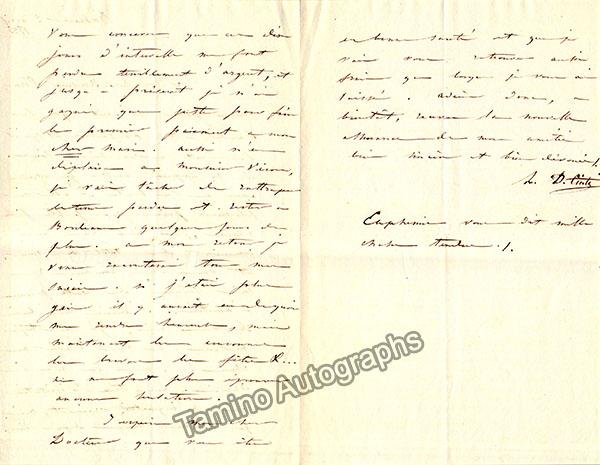 Vous concevez que ces dix
jours d'intervalle me font
perdre terriblement d'argent, et
jusqu'à présent je n'ai
gagné que juste pour faire
le premier paiement a mon
cher mari. aussi n'en
déplaise a monsieur Véron,
je vais tâcher de rattraper
le tems perdu et rester a
Bordeaux quelques jours de
plus. a mon retour je
vous raconterai tous mes
succès. si j'étais plus
gaie il y aurait eu de quoi
me rendre heureuse, mais
maintenant les couronnes
les bravos les fêtes &...
ne me font plus éprouver
aucune sensation.
J'espère mon cher
Docteur que vous êtes
en bonne santé et que je
vais vous retrouver aussi
frais que lorsque je vous ai
laissé. adieu donc, a
bientôt, recevez la nouvelle
assurance de mon amitié
bien sincère et bien dévouée.
L. D. Cinti
Euphémie vous dit mille
choses tendres.
Tamino Autographs